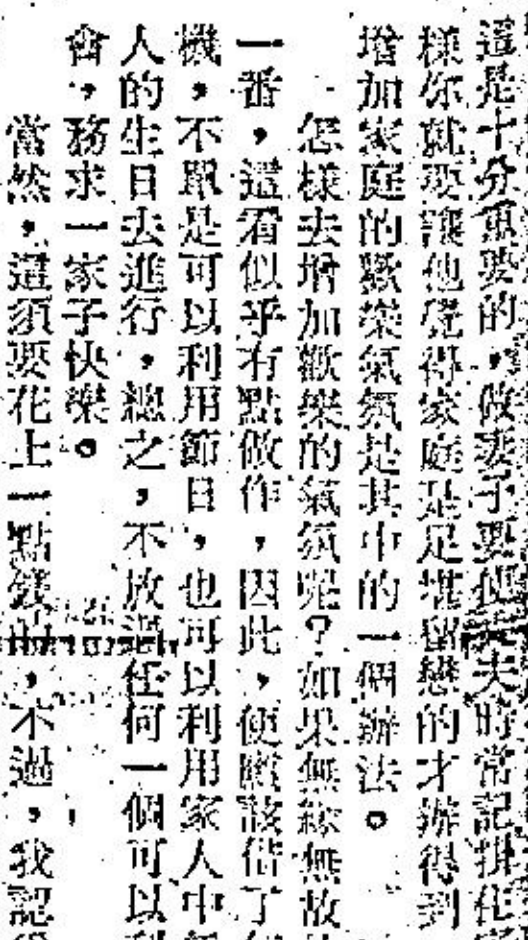 這是十分重要的，做妻子要使丈夫時常記掛住家
樣你就要讓他覺得家庭是足堪留戀的才辦得到
增加家庭的歡樂氣氛是其中的一個辦法。
怎樣去增加歡樂的氣氛呢？如果無緣無故
一番，這看似乎有點做作，因此，便應該借了
機，不單是可以利用節日，也可以利用家人中
人的生日去進行，總之，不放過任何一個可以利
會，務求一家子快樂。
當然，這須要花上一點錢的，不過，我認